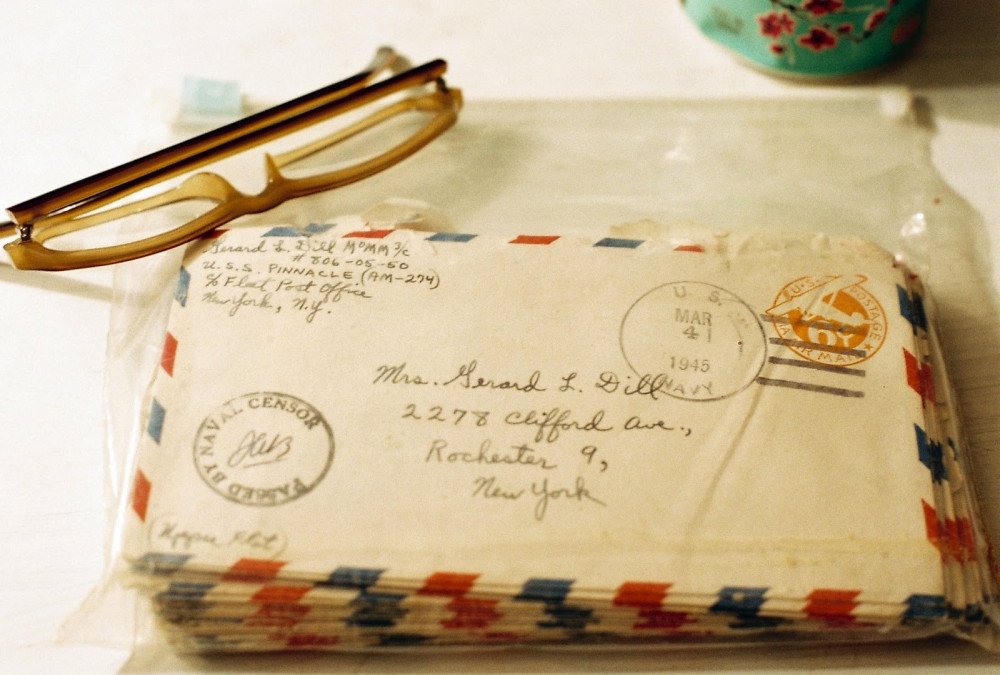 Gerard L. Dill MoMM 3/c
# 806-05-50
U.S.S. PINNACLE (AM-274)
c/o Fleet Post Office
New York, N.Y.
U.S.
MAR
4
1945
NAVY
U.S. POSTAGE
6¢
AIR MAIL
Mrs. Gerard L. Dill
2278 Clifford Ave.,
Rochester 9,
New York
PASSED BY NAVAL CENSOR
(Upper Flat)